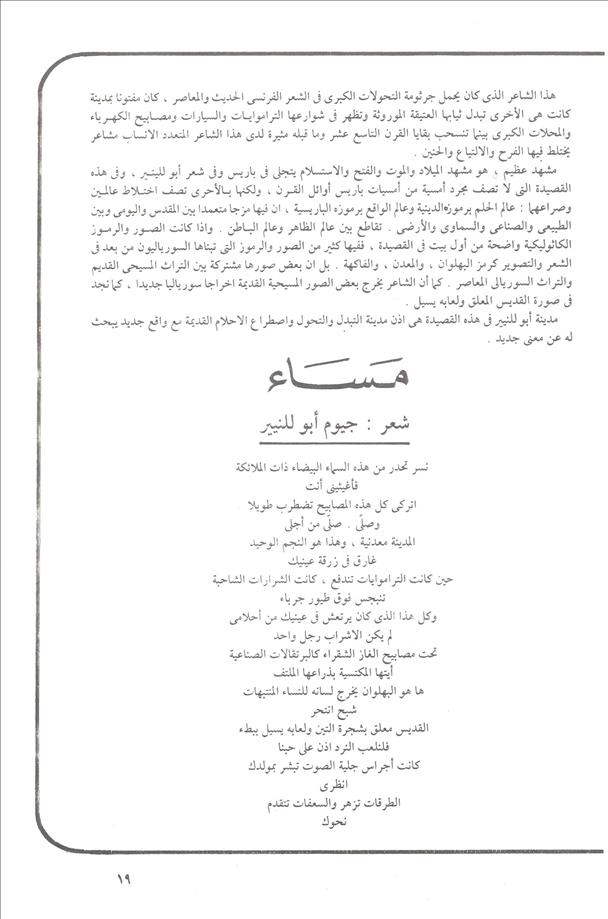 هذا الشاعر الذى كان يحمل جرثومة التحولات الكبرى فى الشعر الفرنسى الحديث والمعاصر ، كان مفتونا بمدينة
كانت هى الأخرى تبدل ثيابها العتيقة الموروثة وتظهر فى شوارعها التراموايات والسيارات ومصابيح الكهرباء
والمحلات الكبرى بينما تنسحب بقايا القرن التاسع عشر وما قبله مثيرة لدى هذا الشاعر المتعدد الانساب مشاعر
يختلط فيها الفرح والالتياع والحنين .
مشهد عظيم ، هو مشهد الميلاد والموت والفتح والاستسلام يتجلى فى باريس وفى شعر أبو للينير ، وفى هذه
القصيدة التى لا تصف مجرد أمسية من أمسيات باريس أوائل القرن ، ولكنها بالأحرى تصف اختلاط عالمين
وصراعهما : عالم الحلم برموزه الدينية وعالم الواقع برموزه الباريسية ، ان فيها مزجا متعمدا بين المقدس واليومى وبين
الطبيعى والصناعى والسماوى والأرضى . تقاطع بين عالم الظاهر وعالم الباطن . واذا كانت الصور والرموز
الكاثوليكية واضحة من أول بيت فى القصيدة ، ففيها كثير من الصور والرموز التى تبناها السورياليون من بعد فى
الشعر والتصوير كرمز البهلوان ، والمعدن ، والفاكهة . بل ان بعض صورها مشتركة بين التراث المسيحى القديم
والتراث السوريالى المعاصر . كما أن الشاعر يخرج بعض الصور المسيحية القديمة اخراجا سورياليا جديدا ، كما نجد
فى صورة القديس المعلق ولعابه يسيل .
مدينة أبو للنيير فى هذه القصيدة هى اذن مدينة التبدل والتحول واصطراع الاحلام القديمة مع واقع جديد يبحث
له عن معنى جديد .
مَسَاء
شعر : جيوم أبو للنيير
نسر تحدر من هذه السماء البيضاء ذات الملائكة
فأغيثينى أنت
اتركى كل هذه المصابيح تضطرب طويلا
وصلّى . صلّى من أجلى
المدينة معدنية ، وهذا هو النجم الوحيد
غارق فى زرقة عينيك
حين كانت الترامويات تندفع ، كانت الشرارات الشاحبة
تنبجس فوق طيور جرباء
وكل هذا الذى كان يرتعش فى عينيك من أحلامى
لم يكن الاشراب رجل واحد
تحت مصابيح الغاز الشقراء كالبرتقالات الصناعية
أيتها المكتسية بذراعها الملتف
ها هو البهلوان يخرج لسانه للنساء المنتبهات
شبح انتحر
القديس معلق بشجرة التين ولعابه يسيل ببطء
فلنلعب النرد اذن على حبنا
كانت أجراس جلية الصوت تبشر بمولدك
انظرى
الطرقات تزهر والسعفات تتقدم
نحوك
١٩